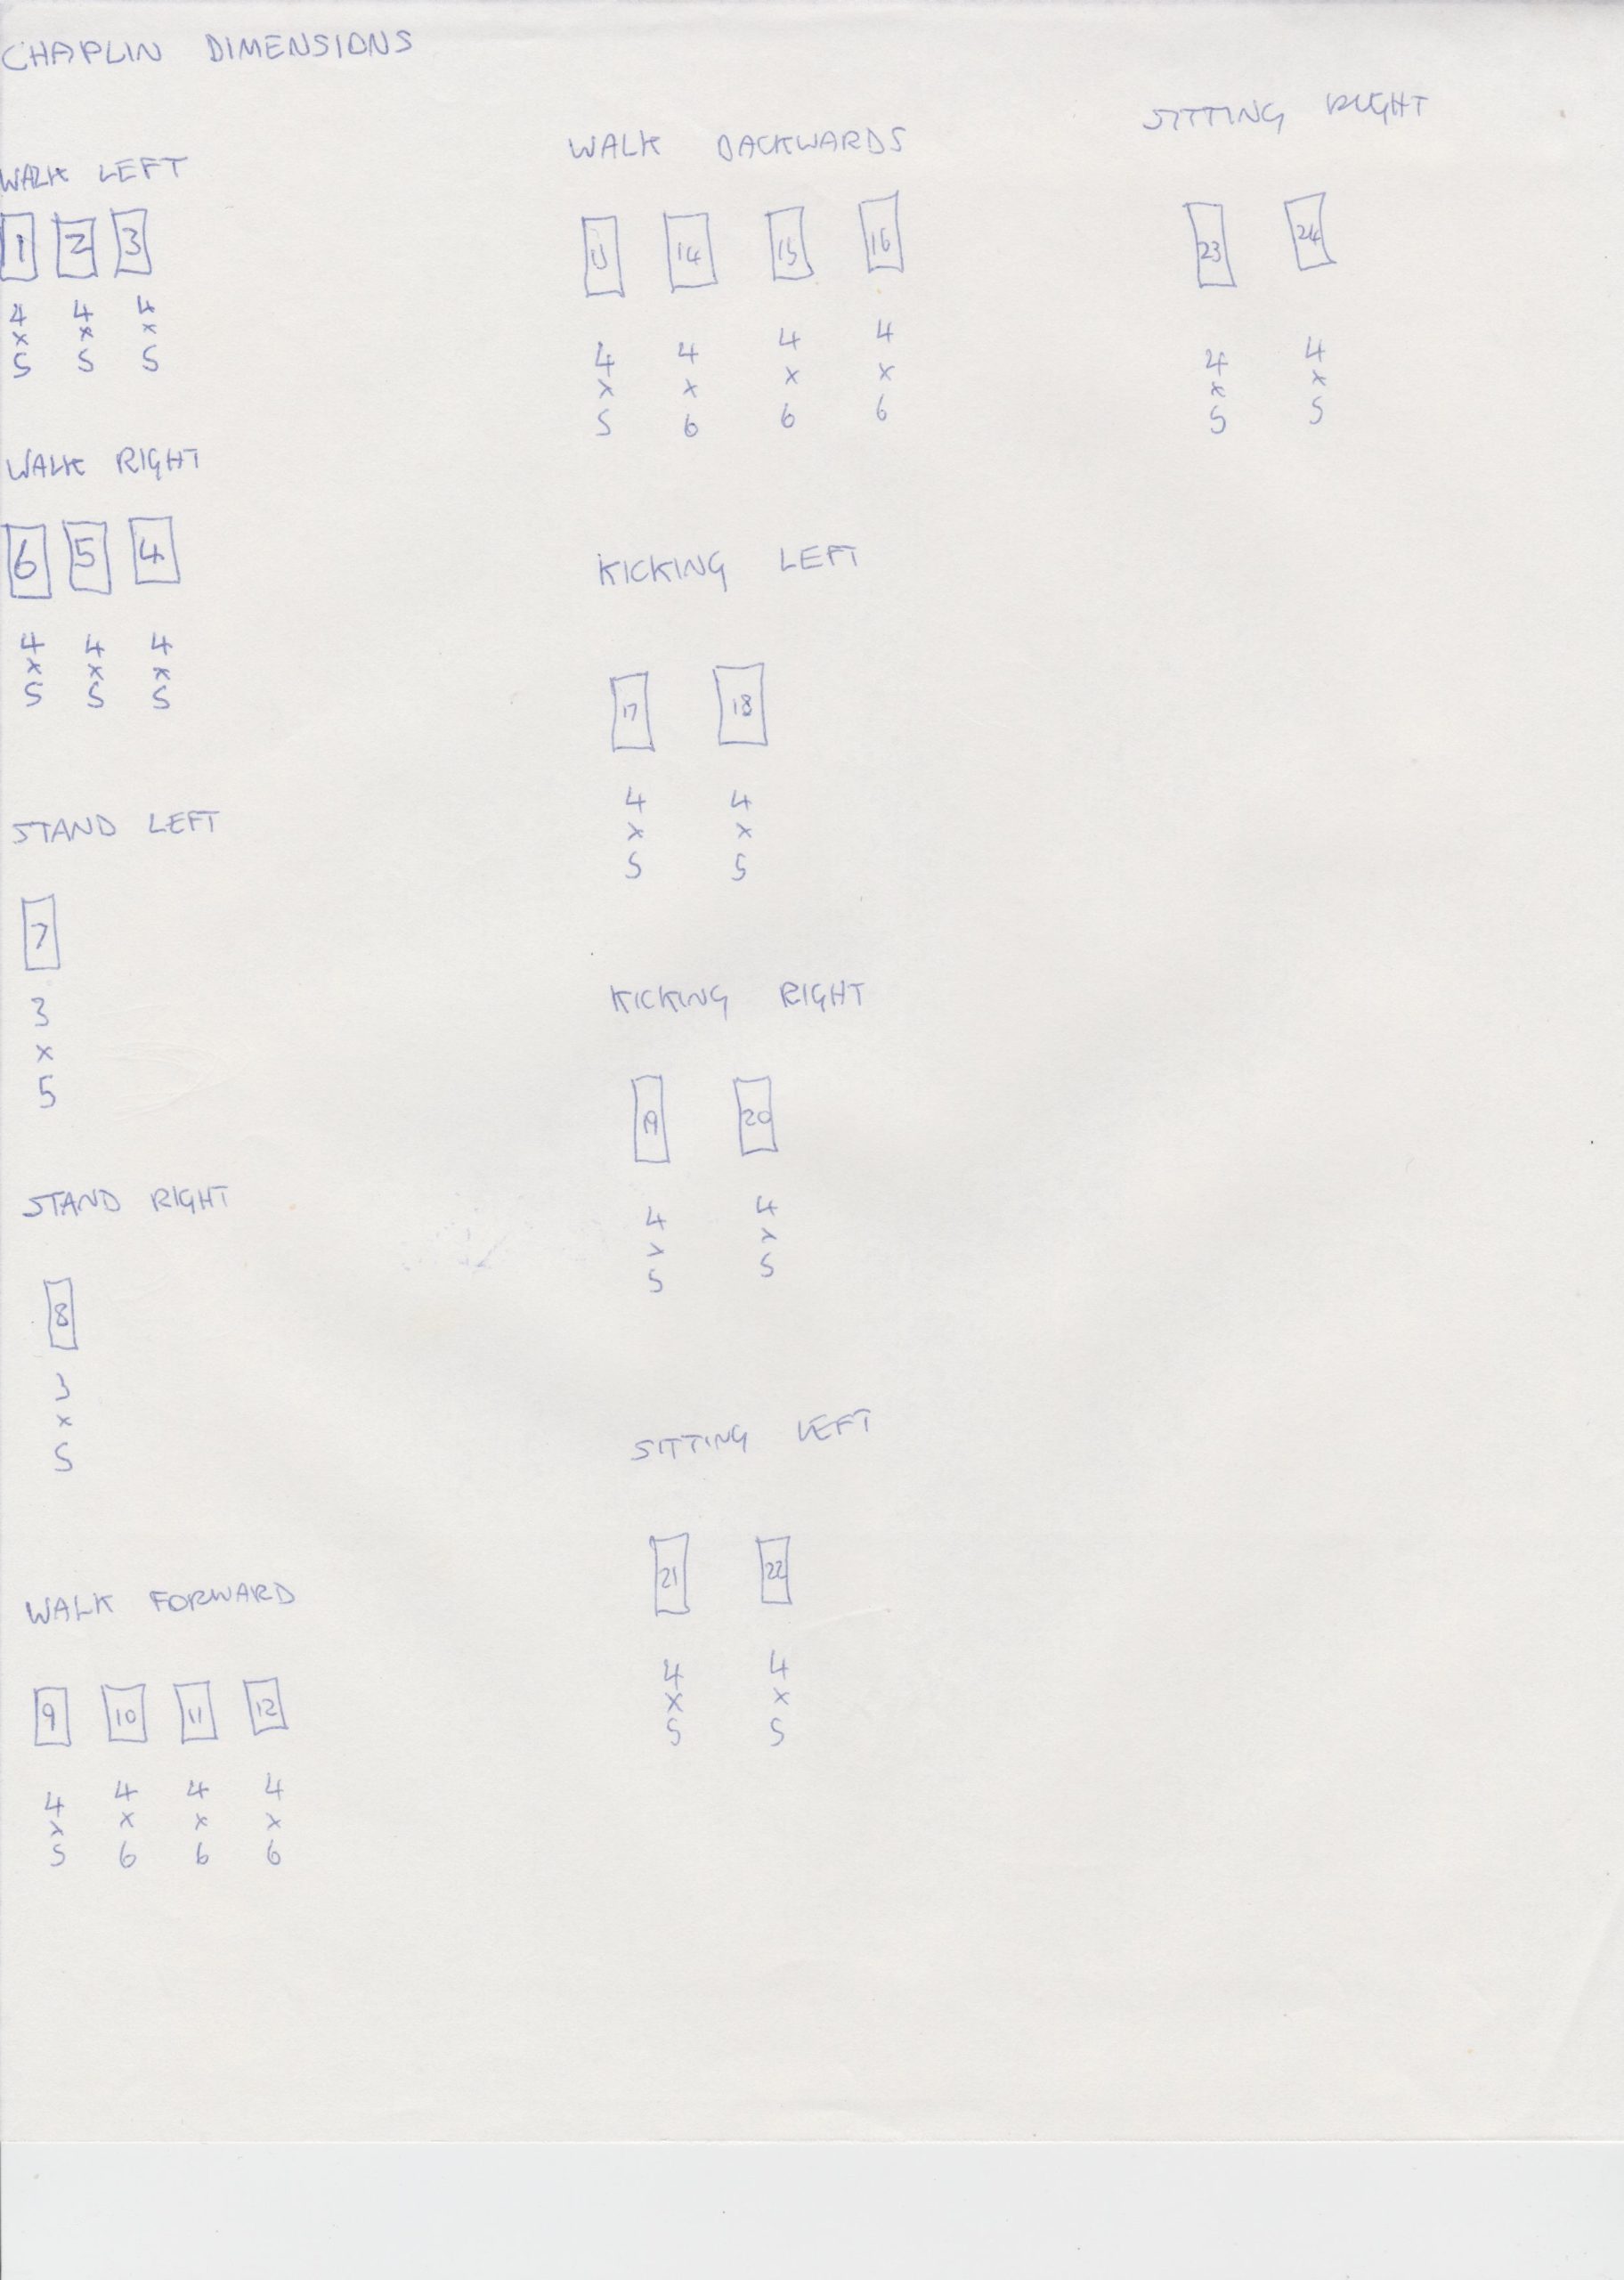 CHAPLIN DIMENSIONS
WALK LEFT
1 2 3
4 4 4
x x x
5 5 5
WALK RIGHT
6 5 4
4 4 4
x x x
5 5 5
STAND LEFT
7
3
x
5
STAND RIGHT
8
3
x
5
WALK FORWARD
9 10 11 12
4 4 4 4
x x x x
5 6 6 6
WALK BACKWARDS
13 14 15 16
4 4 4 4
x x x x
5 6 6 6
KICKING LEFT
17 18
4 4
x x
5 5
KICKING RIGHT
19 20
4 4
x x
5 5
SITTING LEFT
21 22
4 4
x x
5 5
SITTING RIGHT
23 24
4 4
x x
5 5